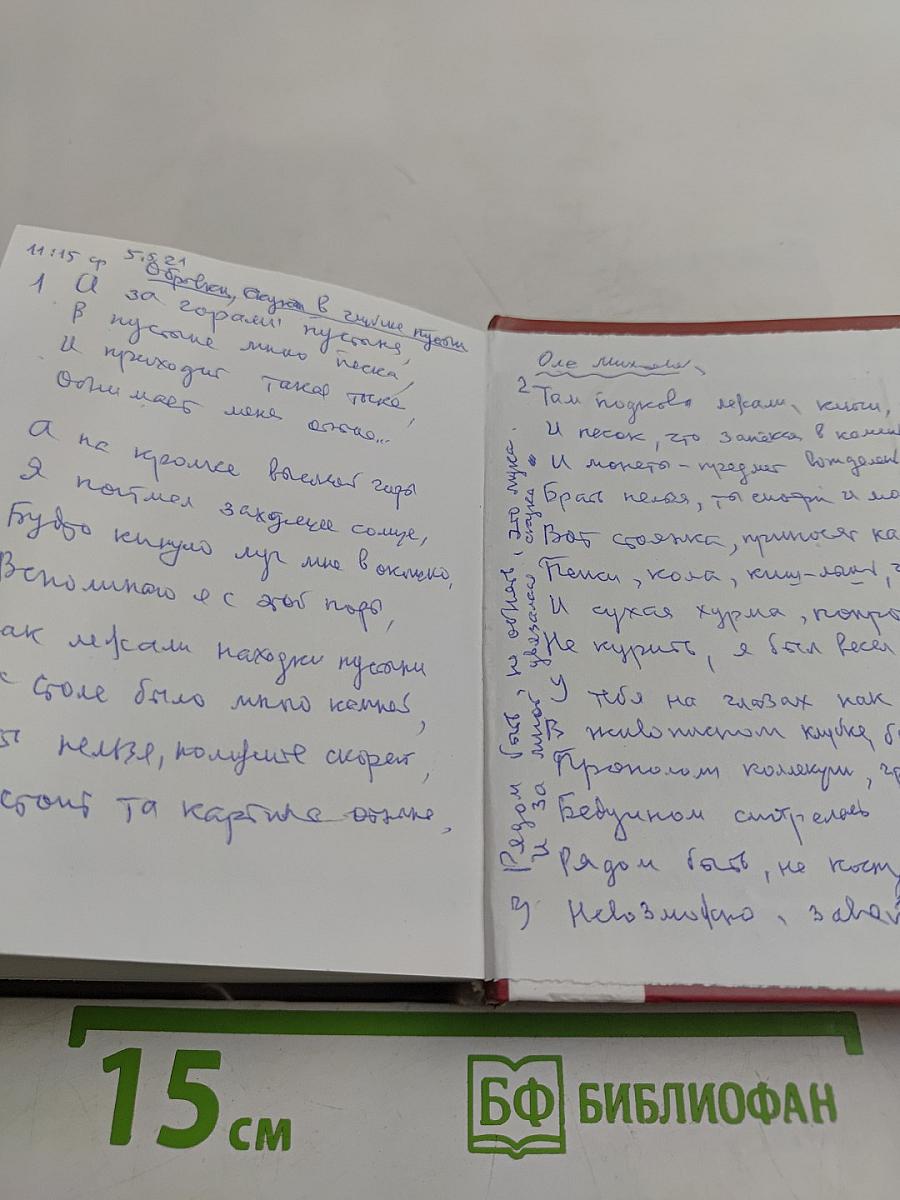 11:15 ср 5.5.21
в глубине пустыни
1 А за горами пустыня,
В пустыне много песка,
И приходит такая тоска,
Обнимает меня отныне...
А на кромке высокой горы
Я поймал заходящее солнце,
Будто кинуло луч мне в оконце,
Вспоминаю я с этой поры,
ак лежали находки пустыни
столе было много камней,
нельзя, положите скорей,
стоит та картина отныне,
Оле
2 Там подкова лежали, ключи,
И песок, что запекся в камен
И монеты – предмет вожделен
Брать нельзя, ты смотри и мо
Вот стоянка, приносят ка
Пепси, кола, киш-
И сухая хурма, попро
Не курить, я был весел
У тебя на глазах как
В живописном клубке, б
Прополом
Бедуином смотрелась
Рядом быть, не косн
3 Невозможно,
Рядом быть, но обнять, это мука.
И за мной увязалась скука
15 см
БФ БИБЛИОФАН